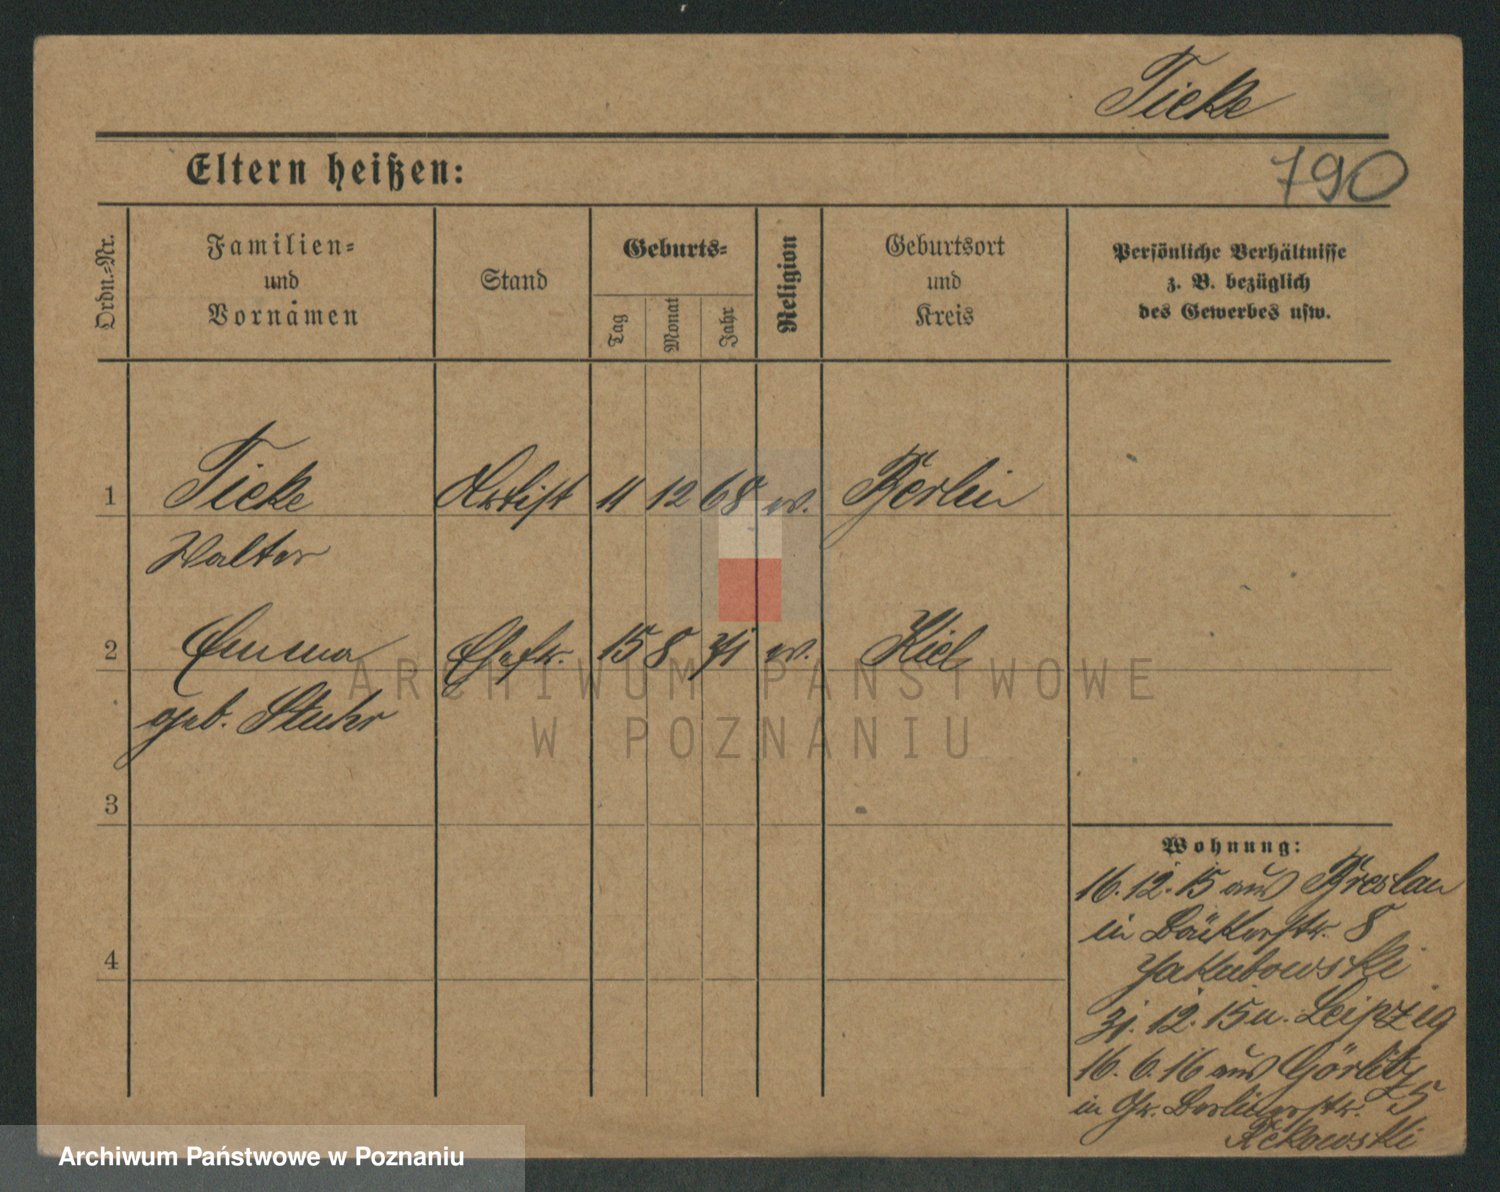 Ticke
Eltern heißen:
790
Ordn.=Nr.
Familien=
und
Vornamen
Stand
Geburts=
Tag
Monat
Jahr
Religion
Geburtsort
und
Kreis
Persönliche Verhältnisse
z. B. bezüglich
des Gewerbes usw.
1 Ticke Artist 11 12 68 ev. Berlin
Walter
2 Emma Ehefr. 15 8 71 ev. Kiel
geb. Stuhr
3
4
Wohnung:
16.12.15 aus Breslau
in Bäckerstr. 8
Jakubowski
31.12.15 n. Leipzig
16.6.16 aus Görlitz
in Gr. Berlinerstr. 5
Rekowski
ARCHIWUM PAŃSTWOWE
W POZNANIU
Archiwum Państwowe w Poznaniu